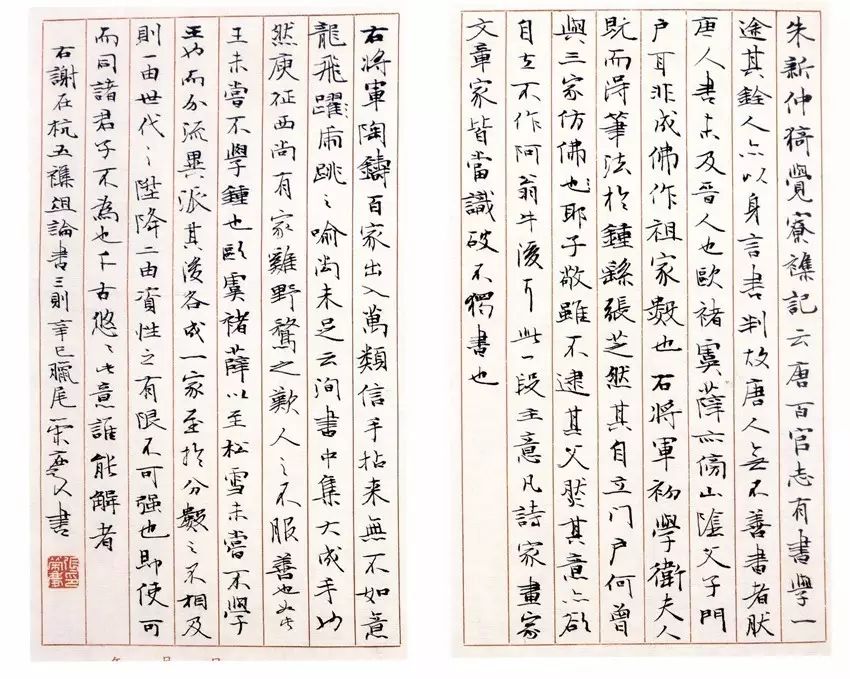 朱新仲猗覺寮襍記云唐百官志有書學一
途其銓人亦以身言書判故唐人無不善書者然
唐人書未及晉人也歐褚虞薛亦傍山陰父子門
户耳非成佛作祖家數也右將軍初學衛夫人
既而得筆法於鍾繇張芝然其自立门户何曾
與三家仿佛也耶子敬雖不逮其父然其意亦欲
自立不作阿翁牛後耳此一段主意凡詩家畫家
文章家皆當識破不獨書也
右將軍陶鑄百家出入萬類信手拈来無不如意
龍飛躍虎跳之喻尚未足云洵書中集大成手也
然庾征西尚有家雞野鶩之歎人之不服善也如此
王未嘗不學鍾也歐虞褚薛以至松雪未嘗不學
王也而分流異派其後各成一家至於分數之不相及
則一由世代之陞降二由資性之有限不可强也即使可
而同諸君子不為也千古悠〻此意誰能解者
右謝在杭五襍俎論書三則辛巳臘尾 書